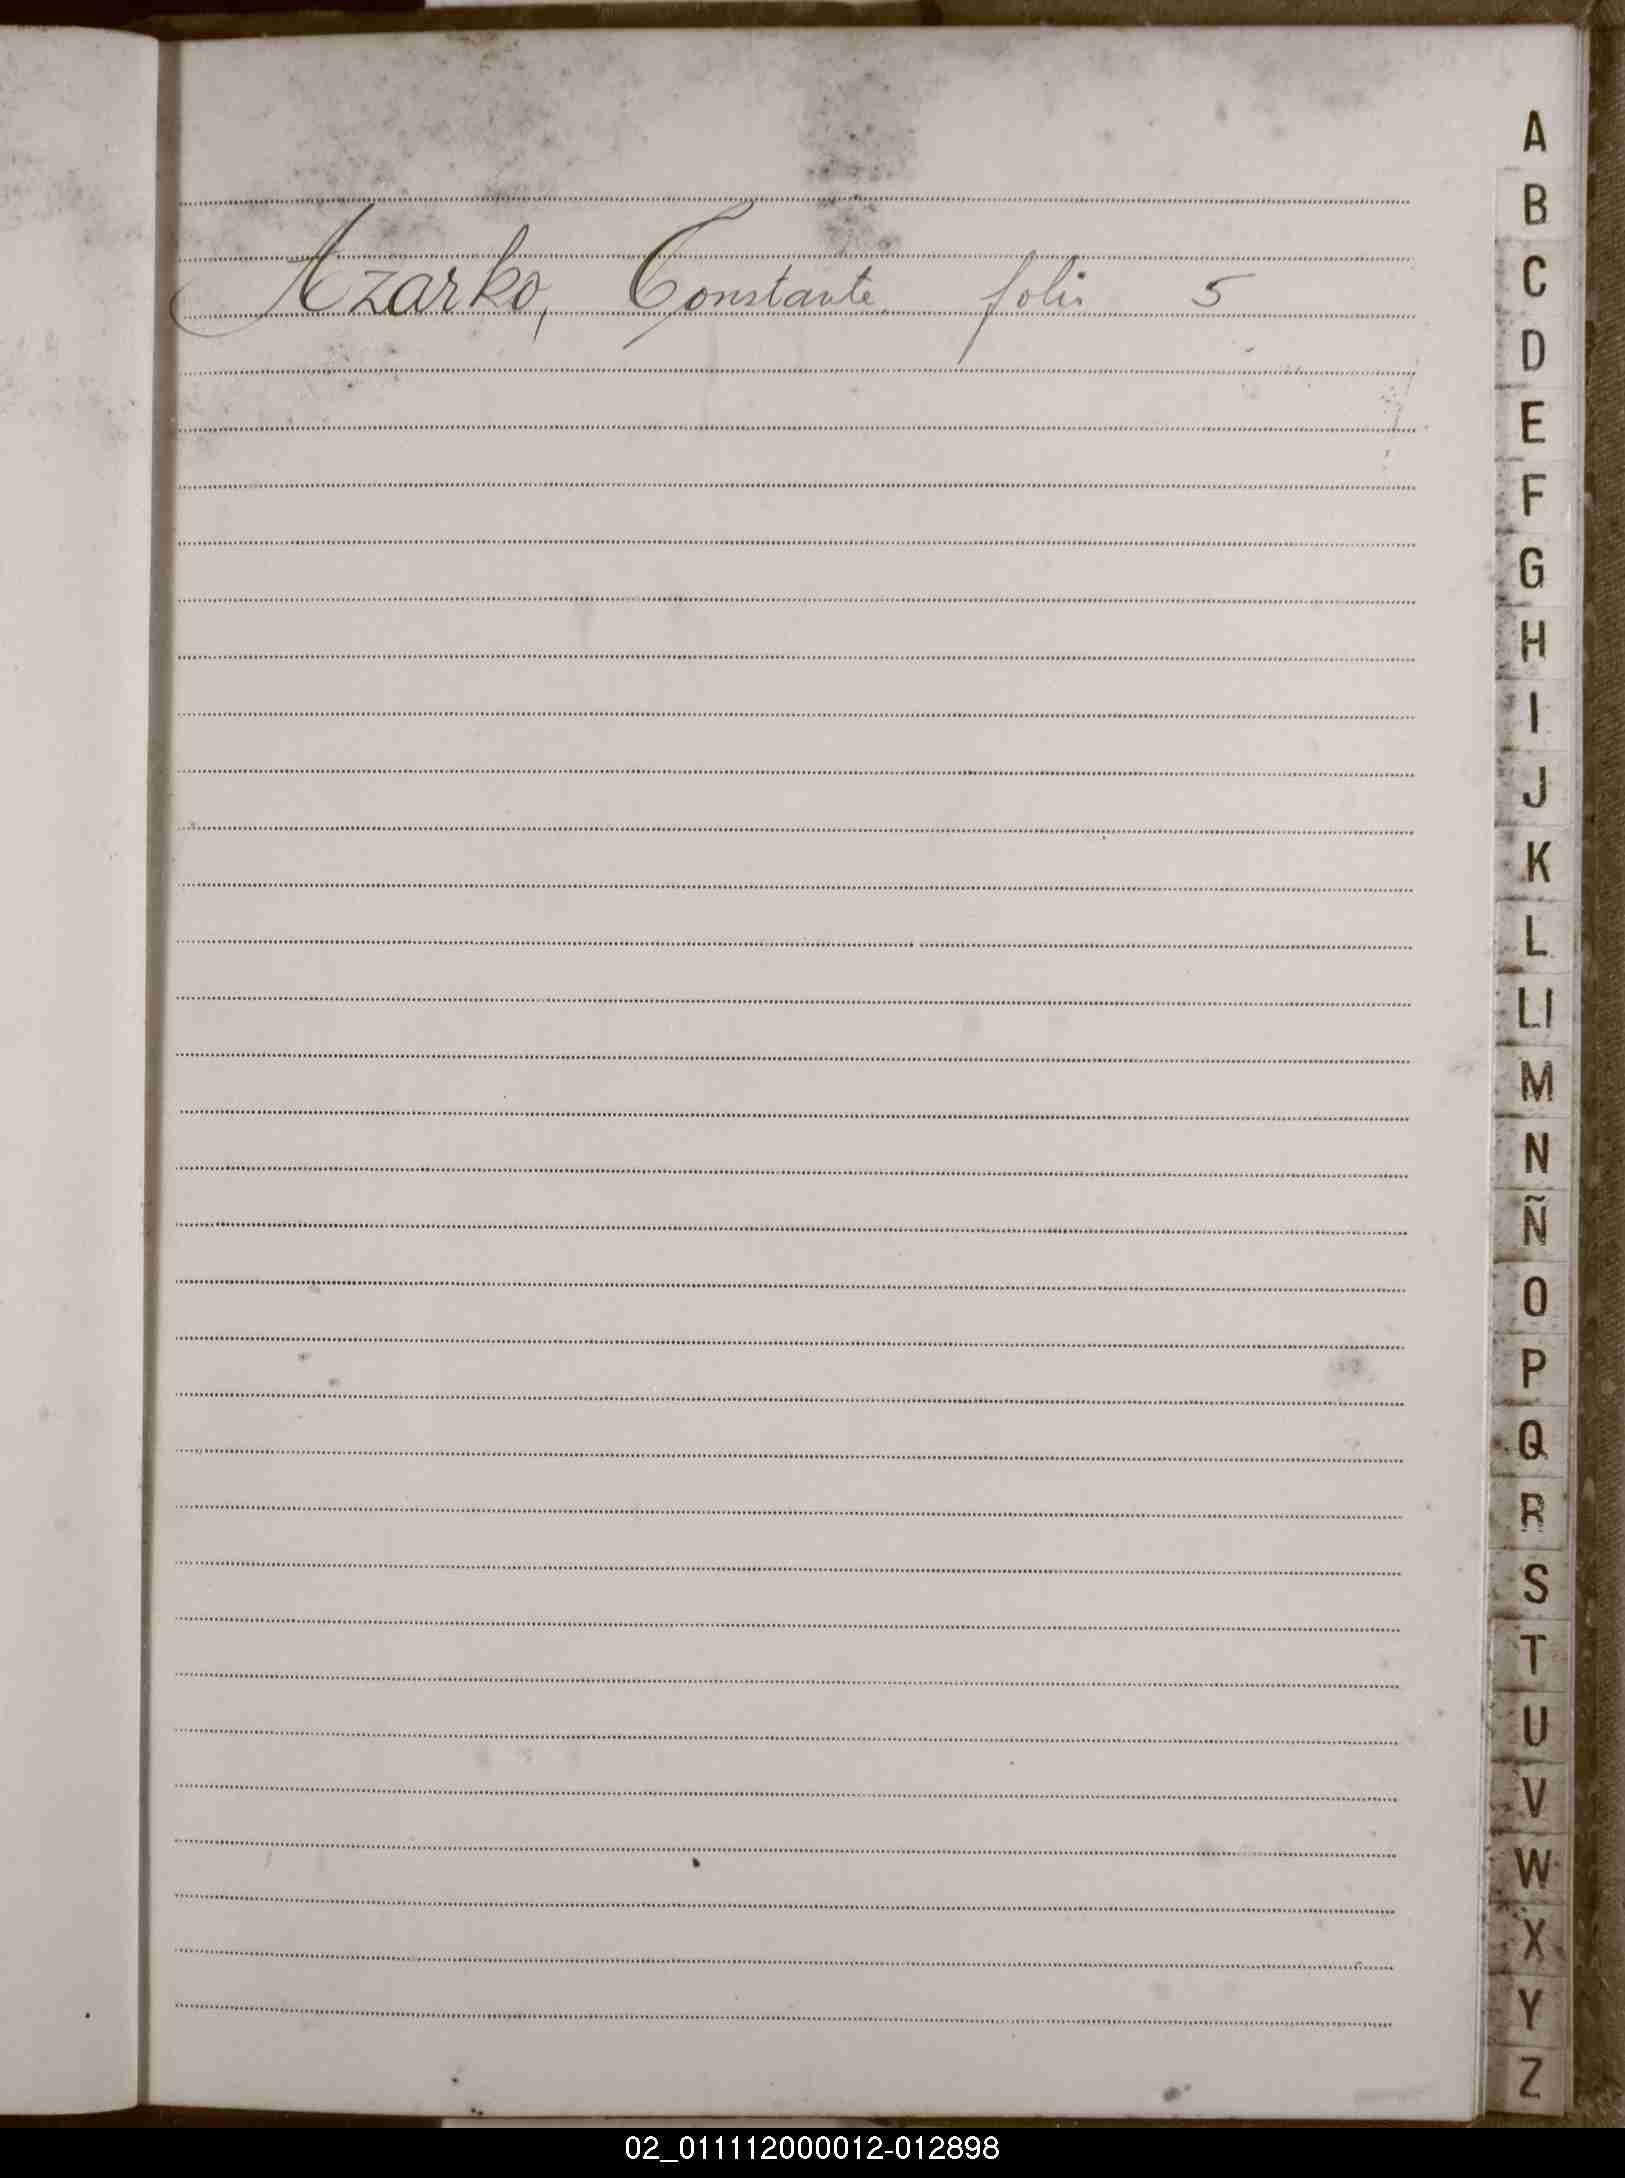 Azarko, Constante folio 5
A
B
C
D
E
F
G
H
I
J
K
L
Ll
M
N
Ñ
O
P
Q
R
S
T
U
V
W
X
Y
Z
02_011112000012-012898